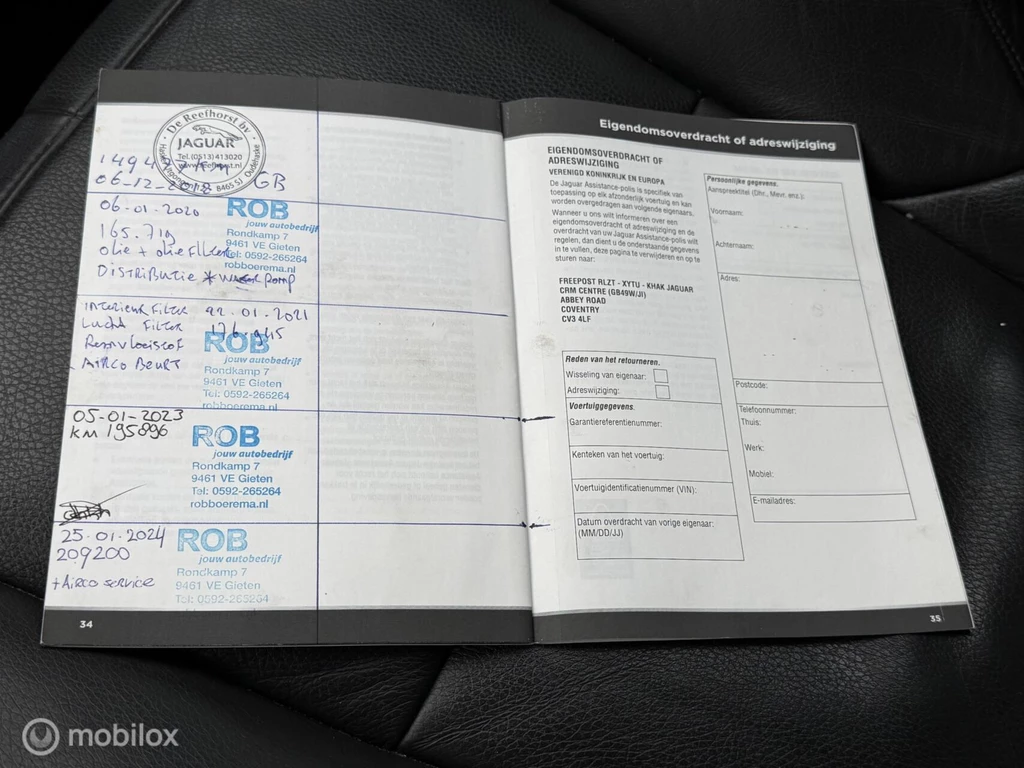 De Reefhorst bv
JAGUAR
Tel. (0513) 413020
www.reefhorst.nl
8465 SJ Oudehaske
149477 km
06-12-2018 GB
06-01-2020
165.719
olie + olie filter
DISTRIBUTIE * WATER POMP
ROB
jouw autobedrijf
Rondkamp 7
9461 VE Gieten
Tel: 0592-265264
robboerema.nl
INTERIEUR FILTER 22.01.2021
LUCHT FILTER 176.945
Remvloeistof
AIRCO BEURT
ROB
jouw autobedrijf
Rondkamp 7
9461 VE Gieten
Tel: 0592-265264
robboerema.nl
05-01-2023
KM 195896
ROB
jouw autobedrijf
Rondkamp 7
9461 VE Gieten
Tel: 0592-265264
robboerema.nl
25-01-2024
209200
+ AIRCO SERVICE
ROB
jouw autobedrijf
Rondkamp 7
9461 VE Gieten
Tel: 0592-265264
34
Eigendomsoverdracht of adreswijziging
EIGENDOMSOVERDRACHT OF
ADRESWIJZIGING
VERENIGD KONINKRIJK EN EUROPA
De Jaguar Assistance-polis is specifiek van
toepassing op elk afzonderlijk voertuig en kan
worden overgedragen aan volgende eigenaars.
Wanneer u ons wilt informeren over een
eigendomsoverdracht of adreswijziging en de
overdracht van uw Jaguar Assistance-polis wilt
regelen, dan dient u de onderstaande gegevens
in te vullen, deze pagina te verwijderen en op te
sturen naar:
FREEPOST RLZT - XYTU - KHAK JAGUAR
CRM CENTRE (GB49W/JI)
ABBEY ROAD
COVENTRY
CV3 4LF
Reden van het retourneren.
Wisseling van eigenaar:
Adreswijziging:
Voertuiggegevens.
Garantiereferentienummer:
Kenteken van het voertuig:
Voertuigidentificatienummer (VIN):
Datum overdracht van vorige eigenaar:
(MM/DD/JJ)
Persoonlijke gegevens.
Aanspreektitel (Dhr., Mevr. enz.):
Voornaam:
Achternaam:
Adres:
Postcode:
Telefoonnummer:
Thuis:
Werk:
Mobiel:
E-mailadres:
35
mobilox